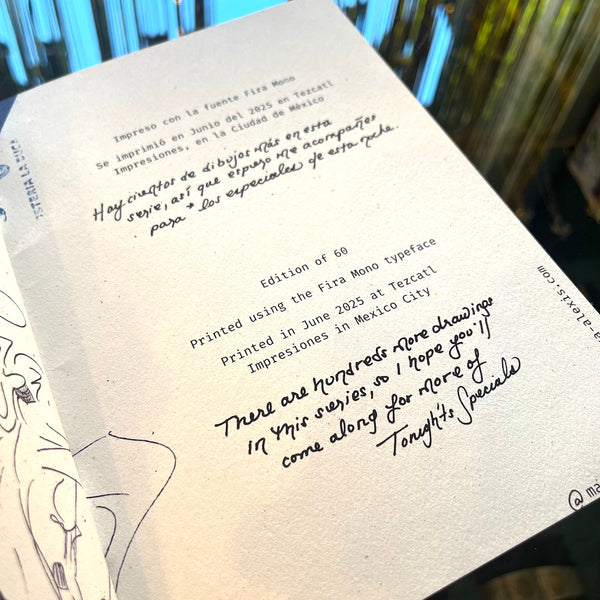 Impreso con la fuente Fira Mono
Se imprimió en Junio del 2025 en Tezcatl
Impresiones, en la Ciudad de México
Hay cientos de dibujos más en esta
serie, así que espero me acompañes
para * los especiales de esta noche.
Edition of 60
Printed using the Fira Mono typeface
Printed in June 2025 at Tezcatl
Impresiones in Mexico City
There are hundreds more drawings
in this series, so I hope you'll
come along for more of
Tonight's Specials
a-alexis.com
@ma